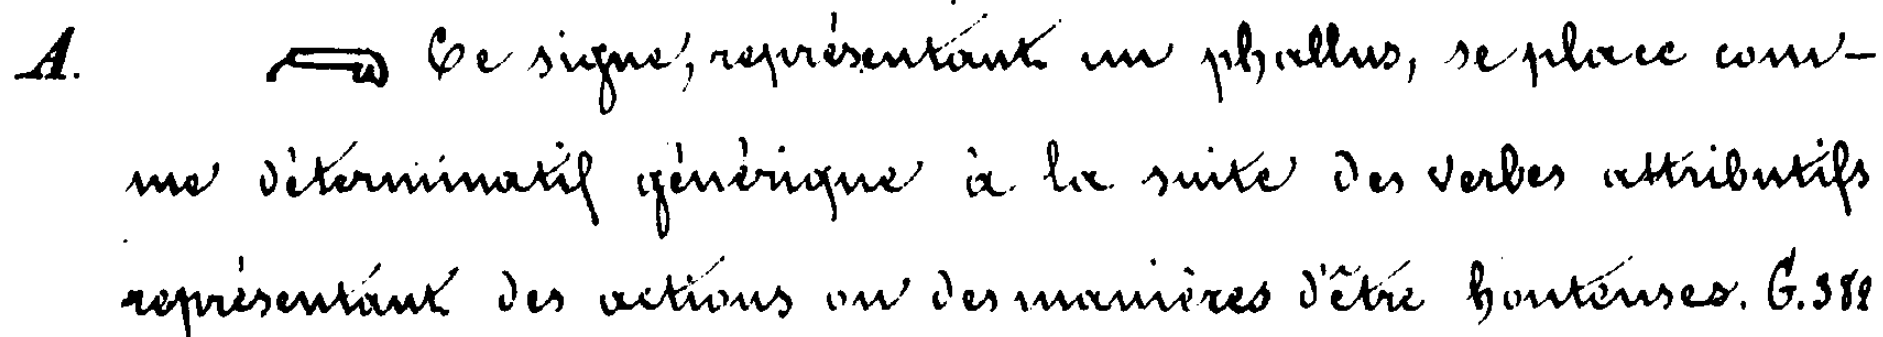 A. Ce signe, représentant un phallus, se place com-
me déterminatif générique à la suite des verbes attributifs
représentant des actions ou des manières d'être honteuses. G. 382